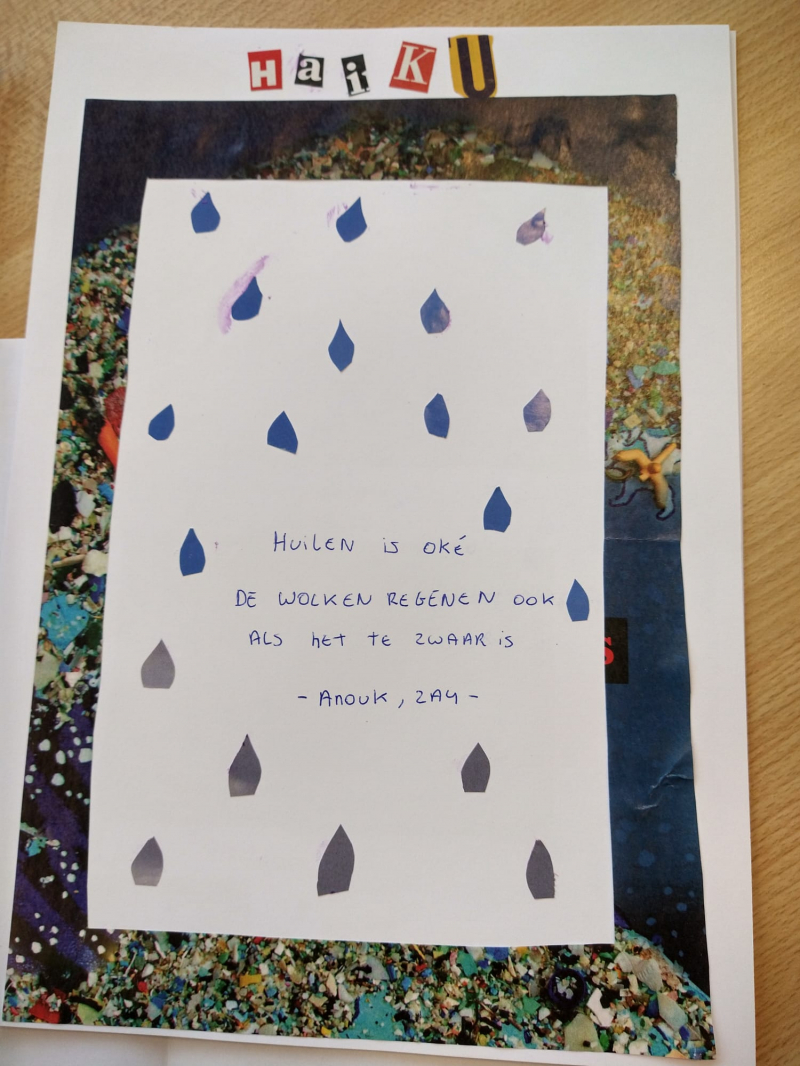 HaiKU
HUiLEN is OKÉ
DE WOLKEN REGENEN OOK
ALS hET TE ZWAAR is
- ANOUK, 2A4 -
S